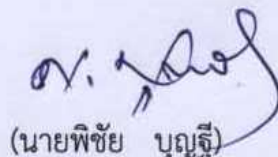 (นายพิชัย บุญฐี)